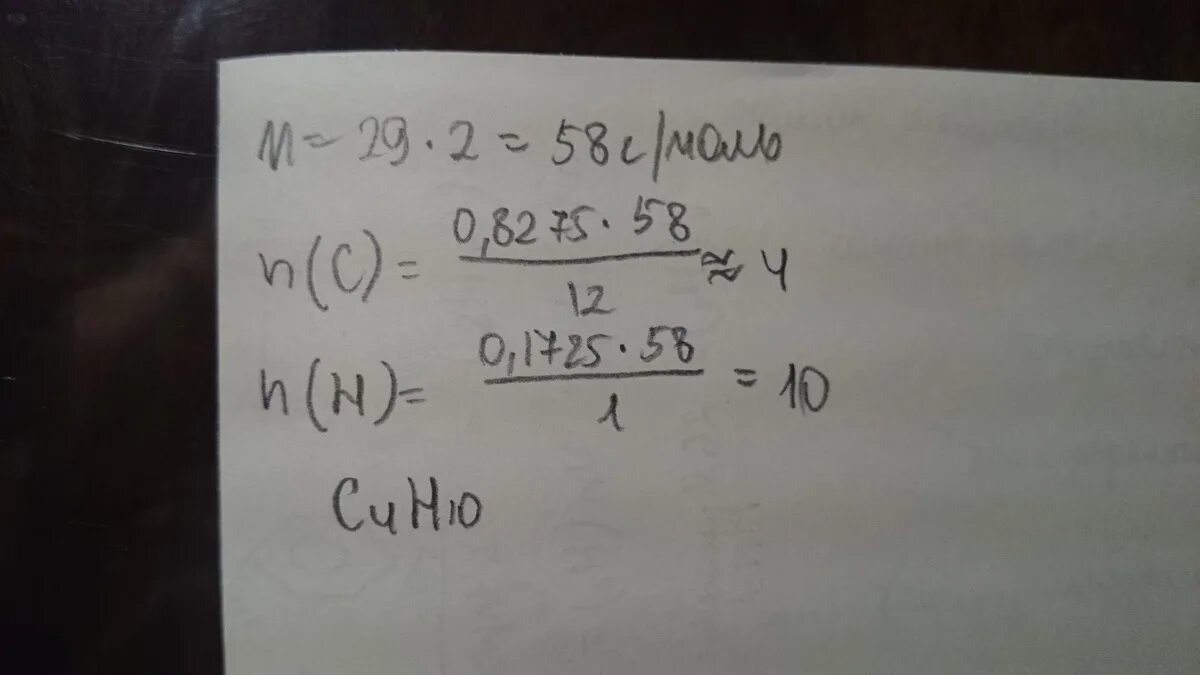 M = 29 · 2 = 58 г/моль
n(C) = 0,8275 · 58 / 12 ≈ 4
n(H) = 0,1725 · 58 / 1 = 10
C4H10